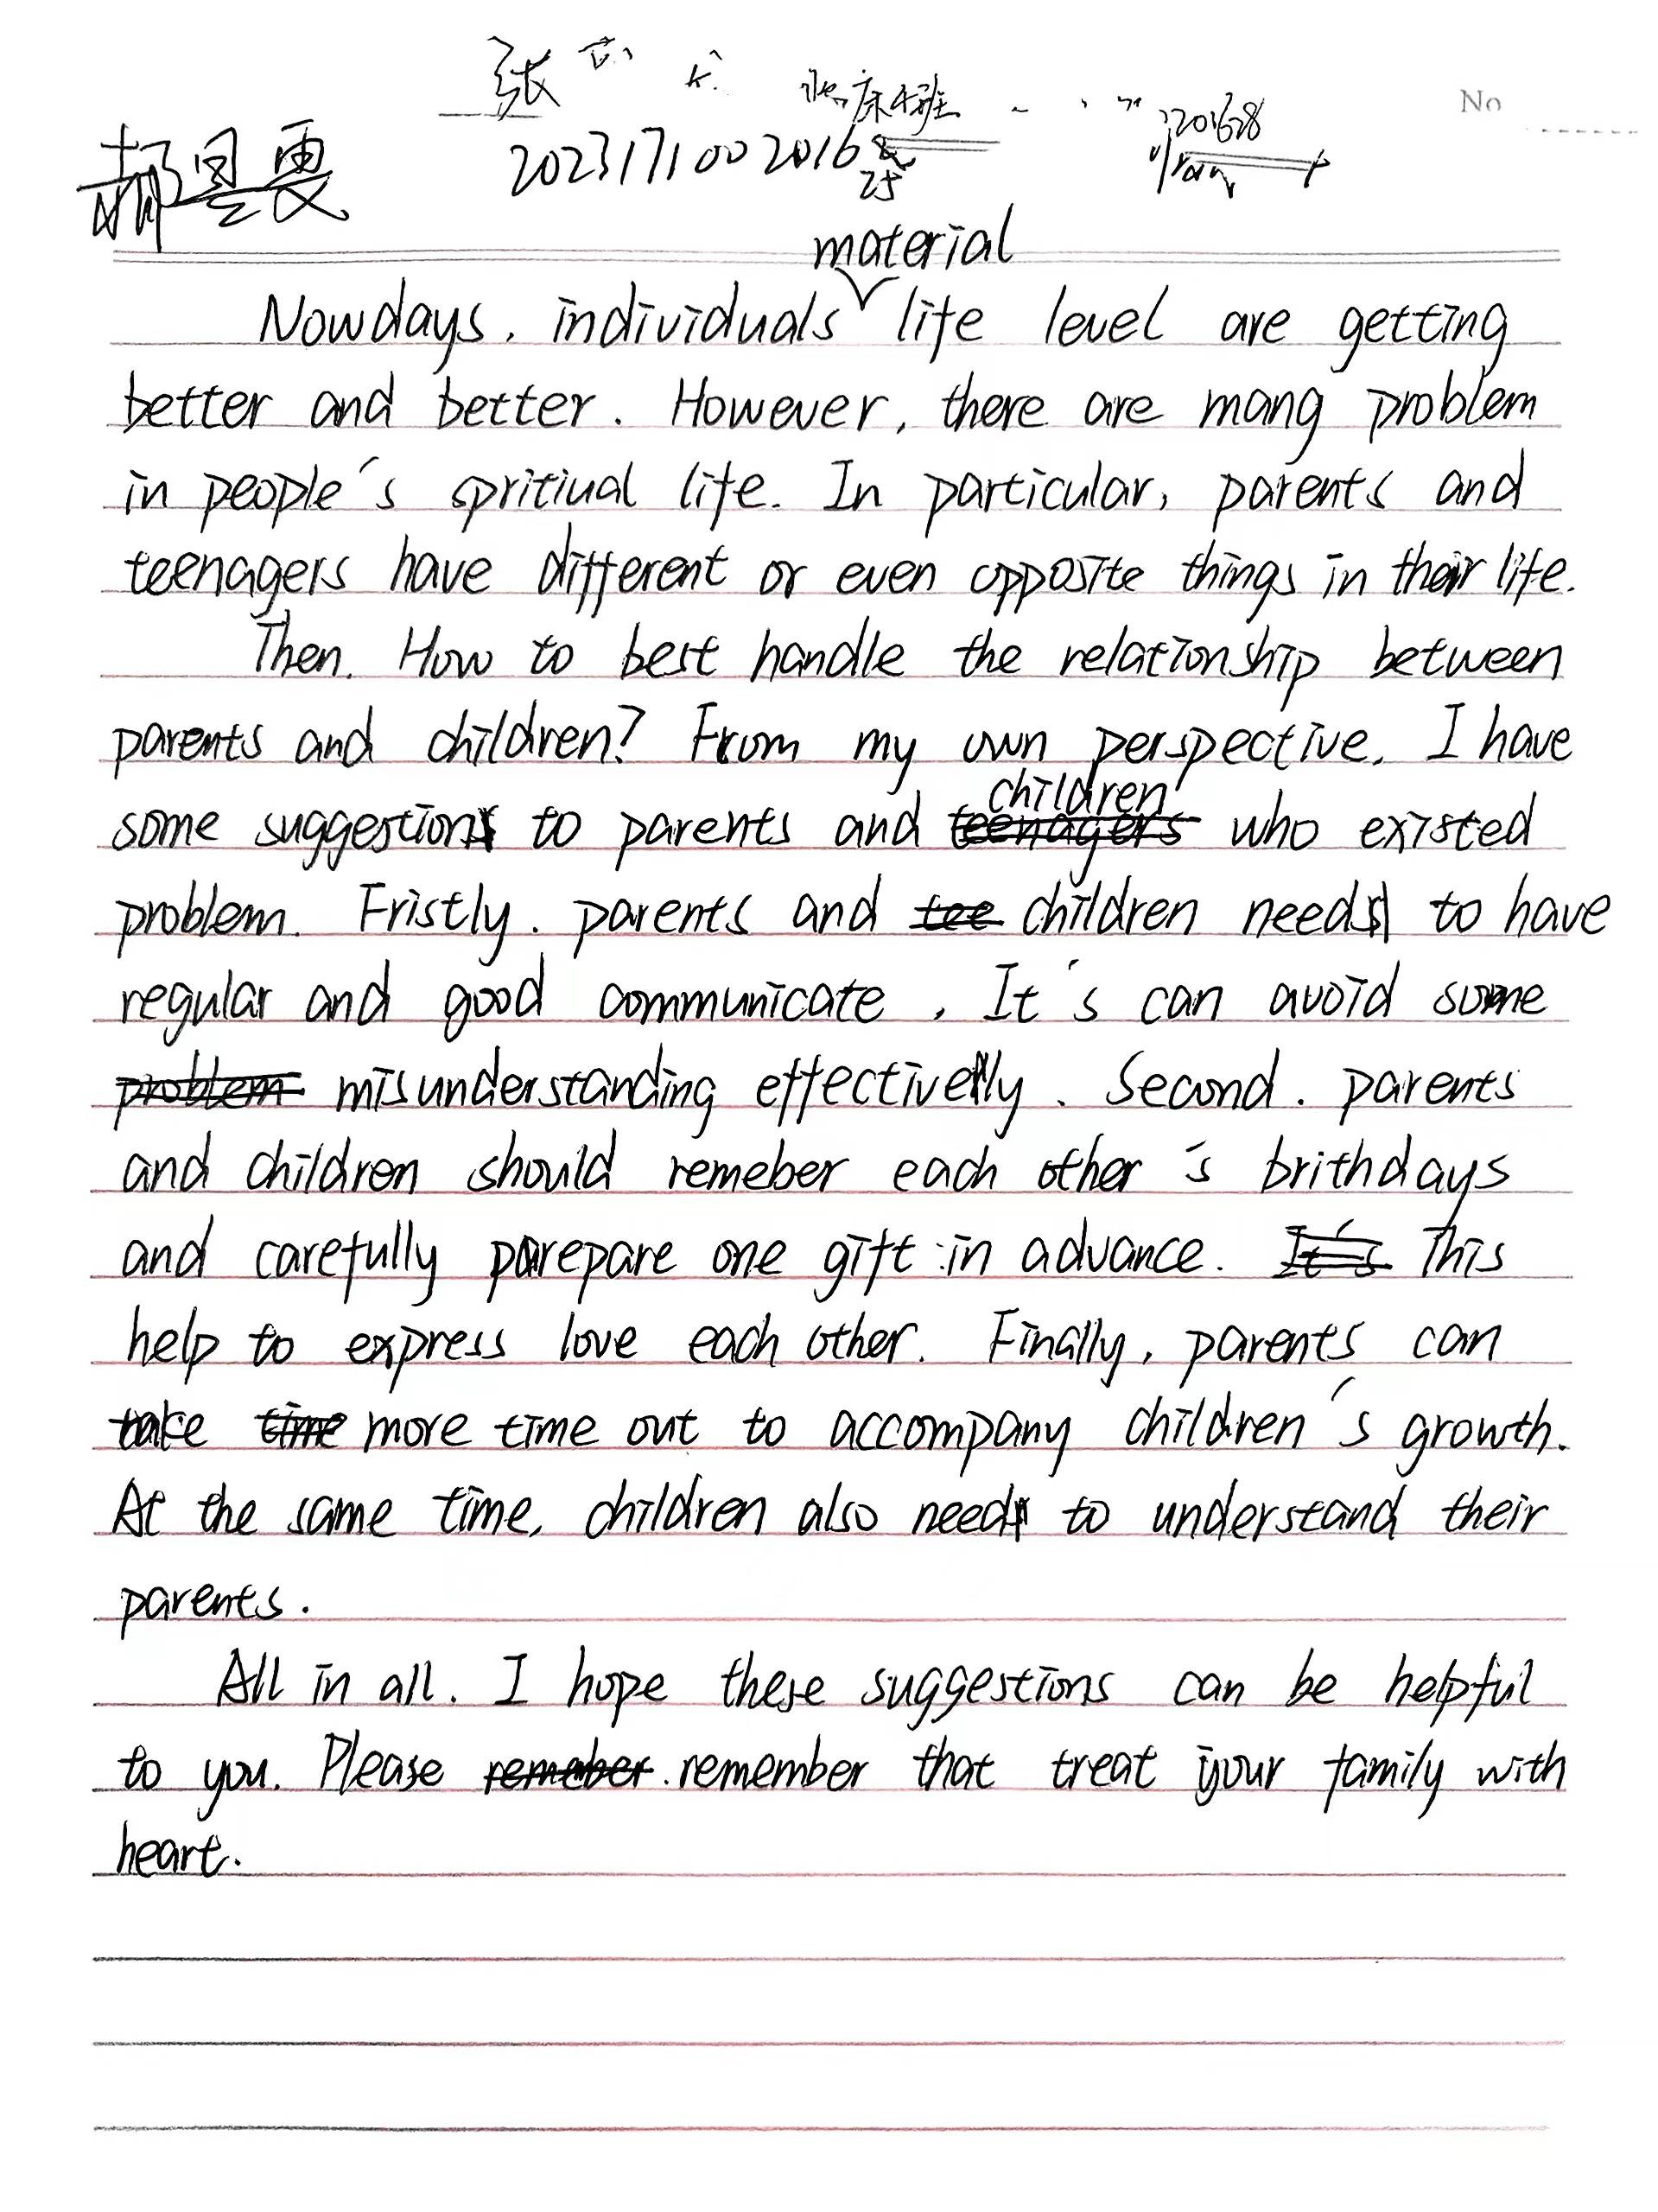 张
临床4班
No
201628
202317100 2016
25
material
Nowdays, individuals life level are getting
better and better. However, there are mang problem
in people's spritiual life. In particular, parents and
teenagers have different or even opposite things in their life.
Then. How to best handle the relationship between
parents and children? From my own perspective, I have
children
some suggestion to parents and teenagers who existed
problem. Fristly. parents and tee children need to have
regular and good communicate. It's can avoid some
problem misunderstanding effectively. Second. parents
and children should remeber each other's brithdays
and carefully prepare one gift in advance. It's This
help to express love each other. Finally, parents can
take time more time out to accompany children's growth.
At the same time, children also need to understand their
parents.
All in all. I hope these suggestions can be helpful
to you. Please remeber remember that treat your family with
heart.